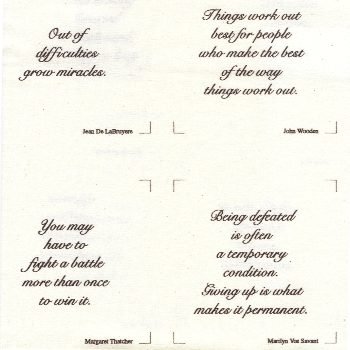 Out of
difficulties
grow miracles.
Jean De LaBruyere
Things work out
best for people
who make the best
of the way
things work out.
John Wooden
You may
have to
fight a battle
more than once
to win it.
Margaret Thatcher
Being defeated
is often
a temporary
condition.
Giving up is what
makes it permanent.
Marilyn Vos Savant